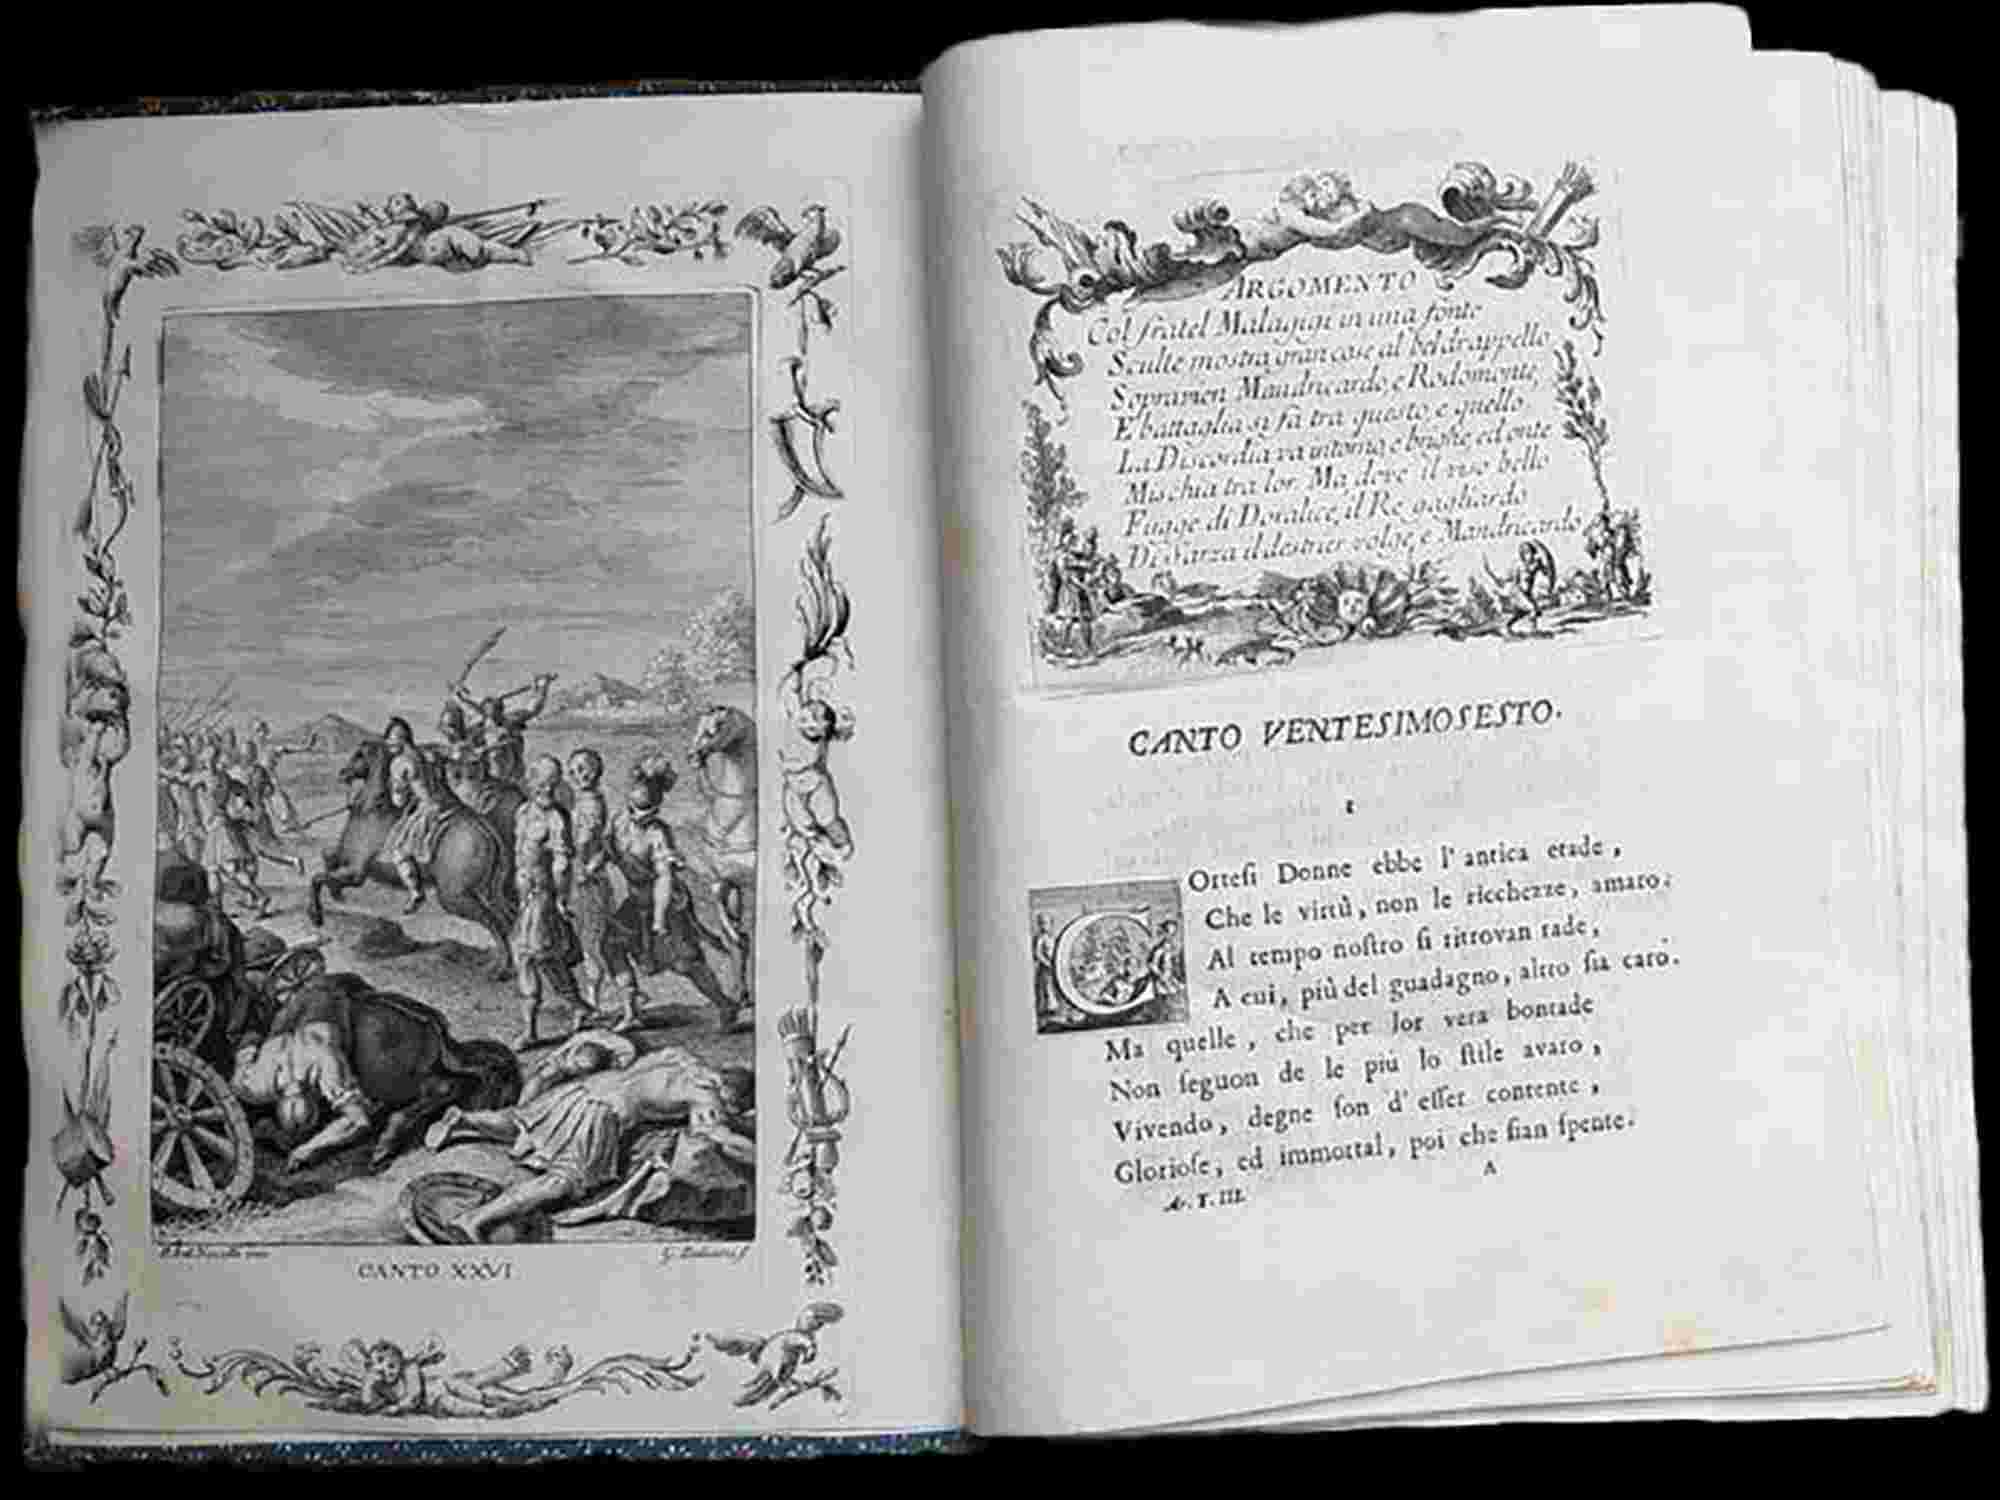 CANTO XXVI
ARGOMENTO
Col fratel Malagigi in una fonte
Sculte mostra gran cose al bel drappello
Sopravien Mandricardo, e Rodomonte,
E battaglia si fà tra questo, e quello.
La Discordia va intorno, e brighe, ed onte
Mischia tra lor. Ma dove il viso bello
Fugge di Doralice, il Re gagliardo
Di Sarza il destrier volge, e Mandricardo
CANTO VENTESIMOSESTO.
I
COrtesi Donne ebbe l' antica etade,
Che le virtù, non le ricchezze, amaro:
Al tempo nostro si ritrovan rade,
A cui, più del guadagno, altro sia caro.
Ma quelle, che per lor vera bontade
Non seguon de le più lo stile avaro,
Vivendo, degne son d' esser contente,
Gloriose, ed immortal, poi che sian spente.
Ar. T. III. A